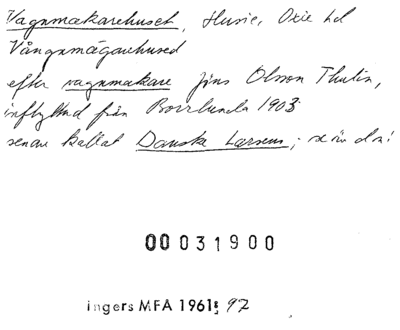 Vagnmakarehuset, Husie, Oxie hd
Vångnmågarehused
efter vagnmakare Jöns Olsson Thulin,
inflyttad från Borrlunda 1903
senare kallat Danska Larsens; se än do!
00 031900
ingers MFA 1961: 92